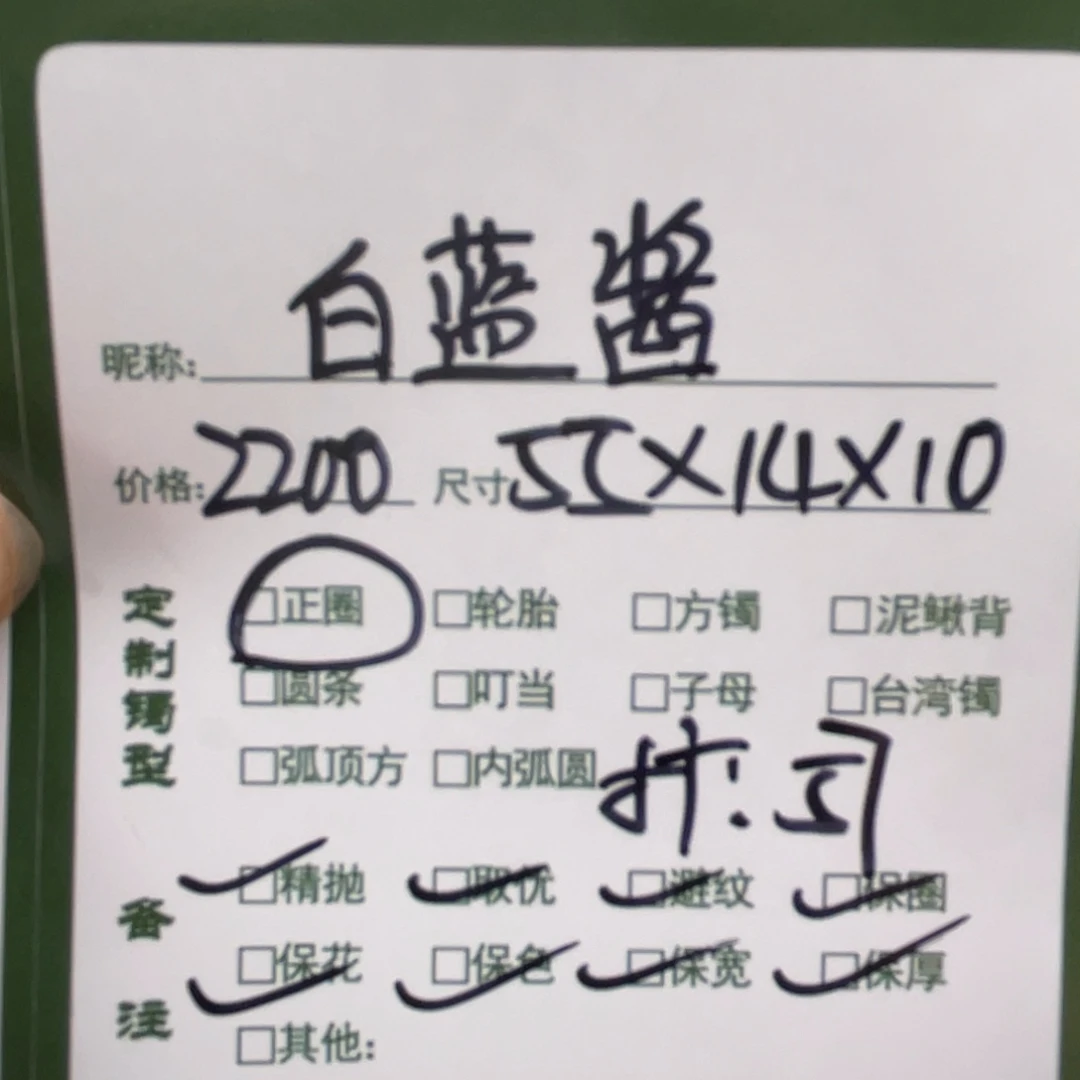 昵称: 白蓝酱
价格: 2200 尺寸 55×14×10
定制镯型
□正圈 □轮胎 □方镯 □泥鳅背
□圆条 □叮当 □子母 □台湾镯
□弧顶方 □内弧圆
备注
□精抛 □取优 □避纹 □保圈
□保花 □保色 □保宽 □保厚
□其他: